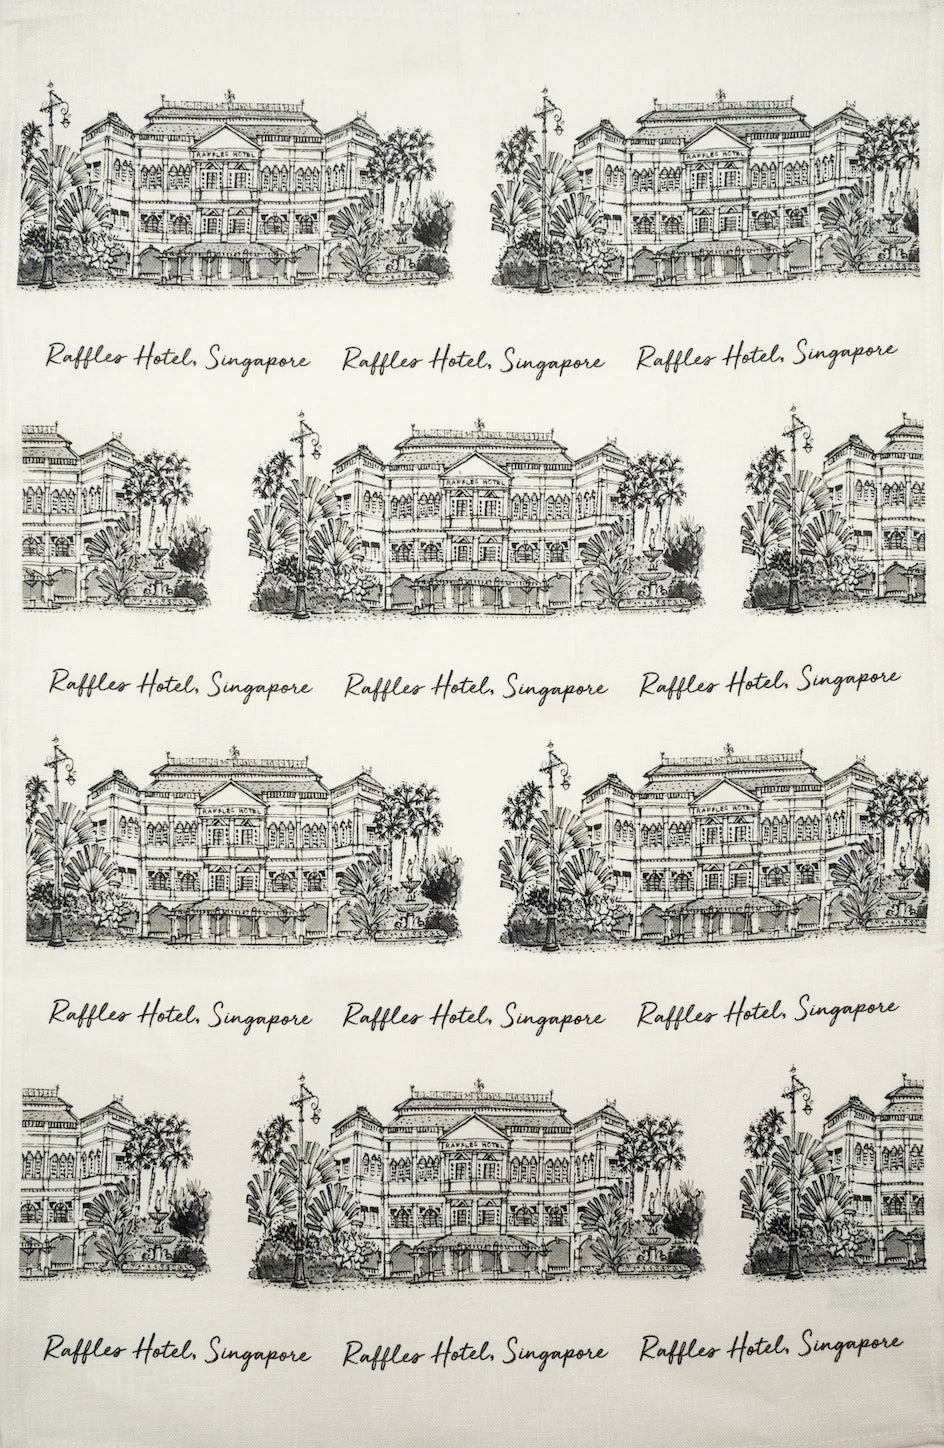 RAFFLES HOTEL RAFFLES HOTEL
Raffles Hotel, Singapore Raffles Hotel, Singapore Raffles Hotel, Singapore
RAFFLES HOTEL
Raffles Hotel, Singapore Raffles Hotel, Singapore Raffles Hotel, Singapore
RAFFLES HOTEL RAFFLES HOTEL
Raffles Hotel, Singapore Raffles Hotel, Singapore Raffles Hotel, Singapore
RAFFLES HOTEL
Raffles Hotel, Singapore Raffles Hotel, Singapore Raffles Hotel, Singapore